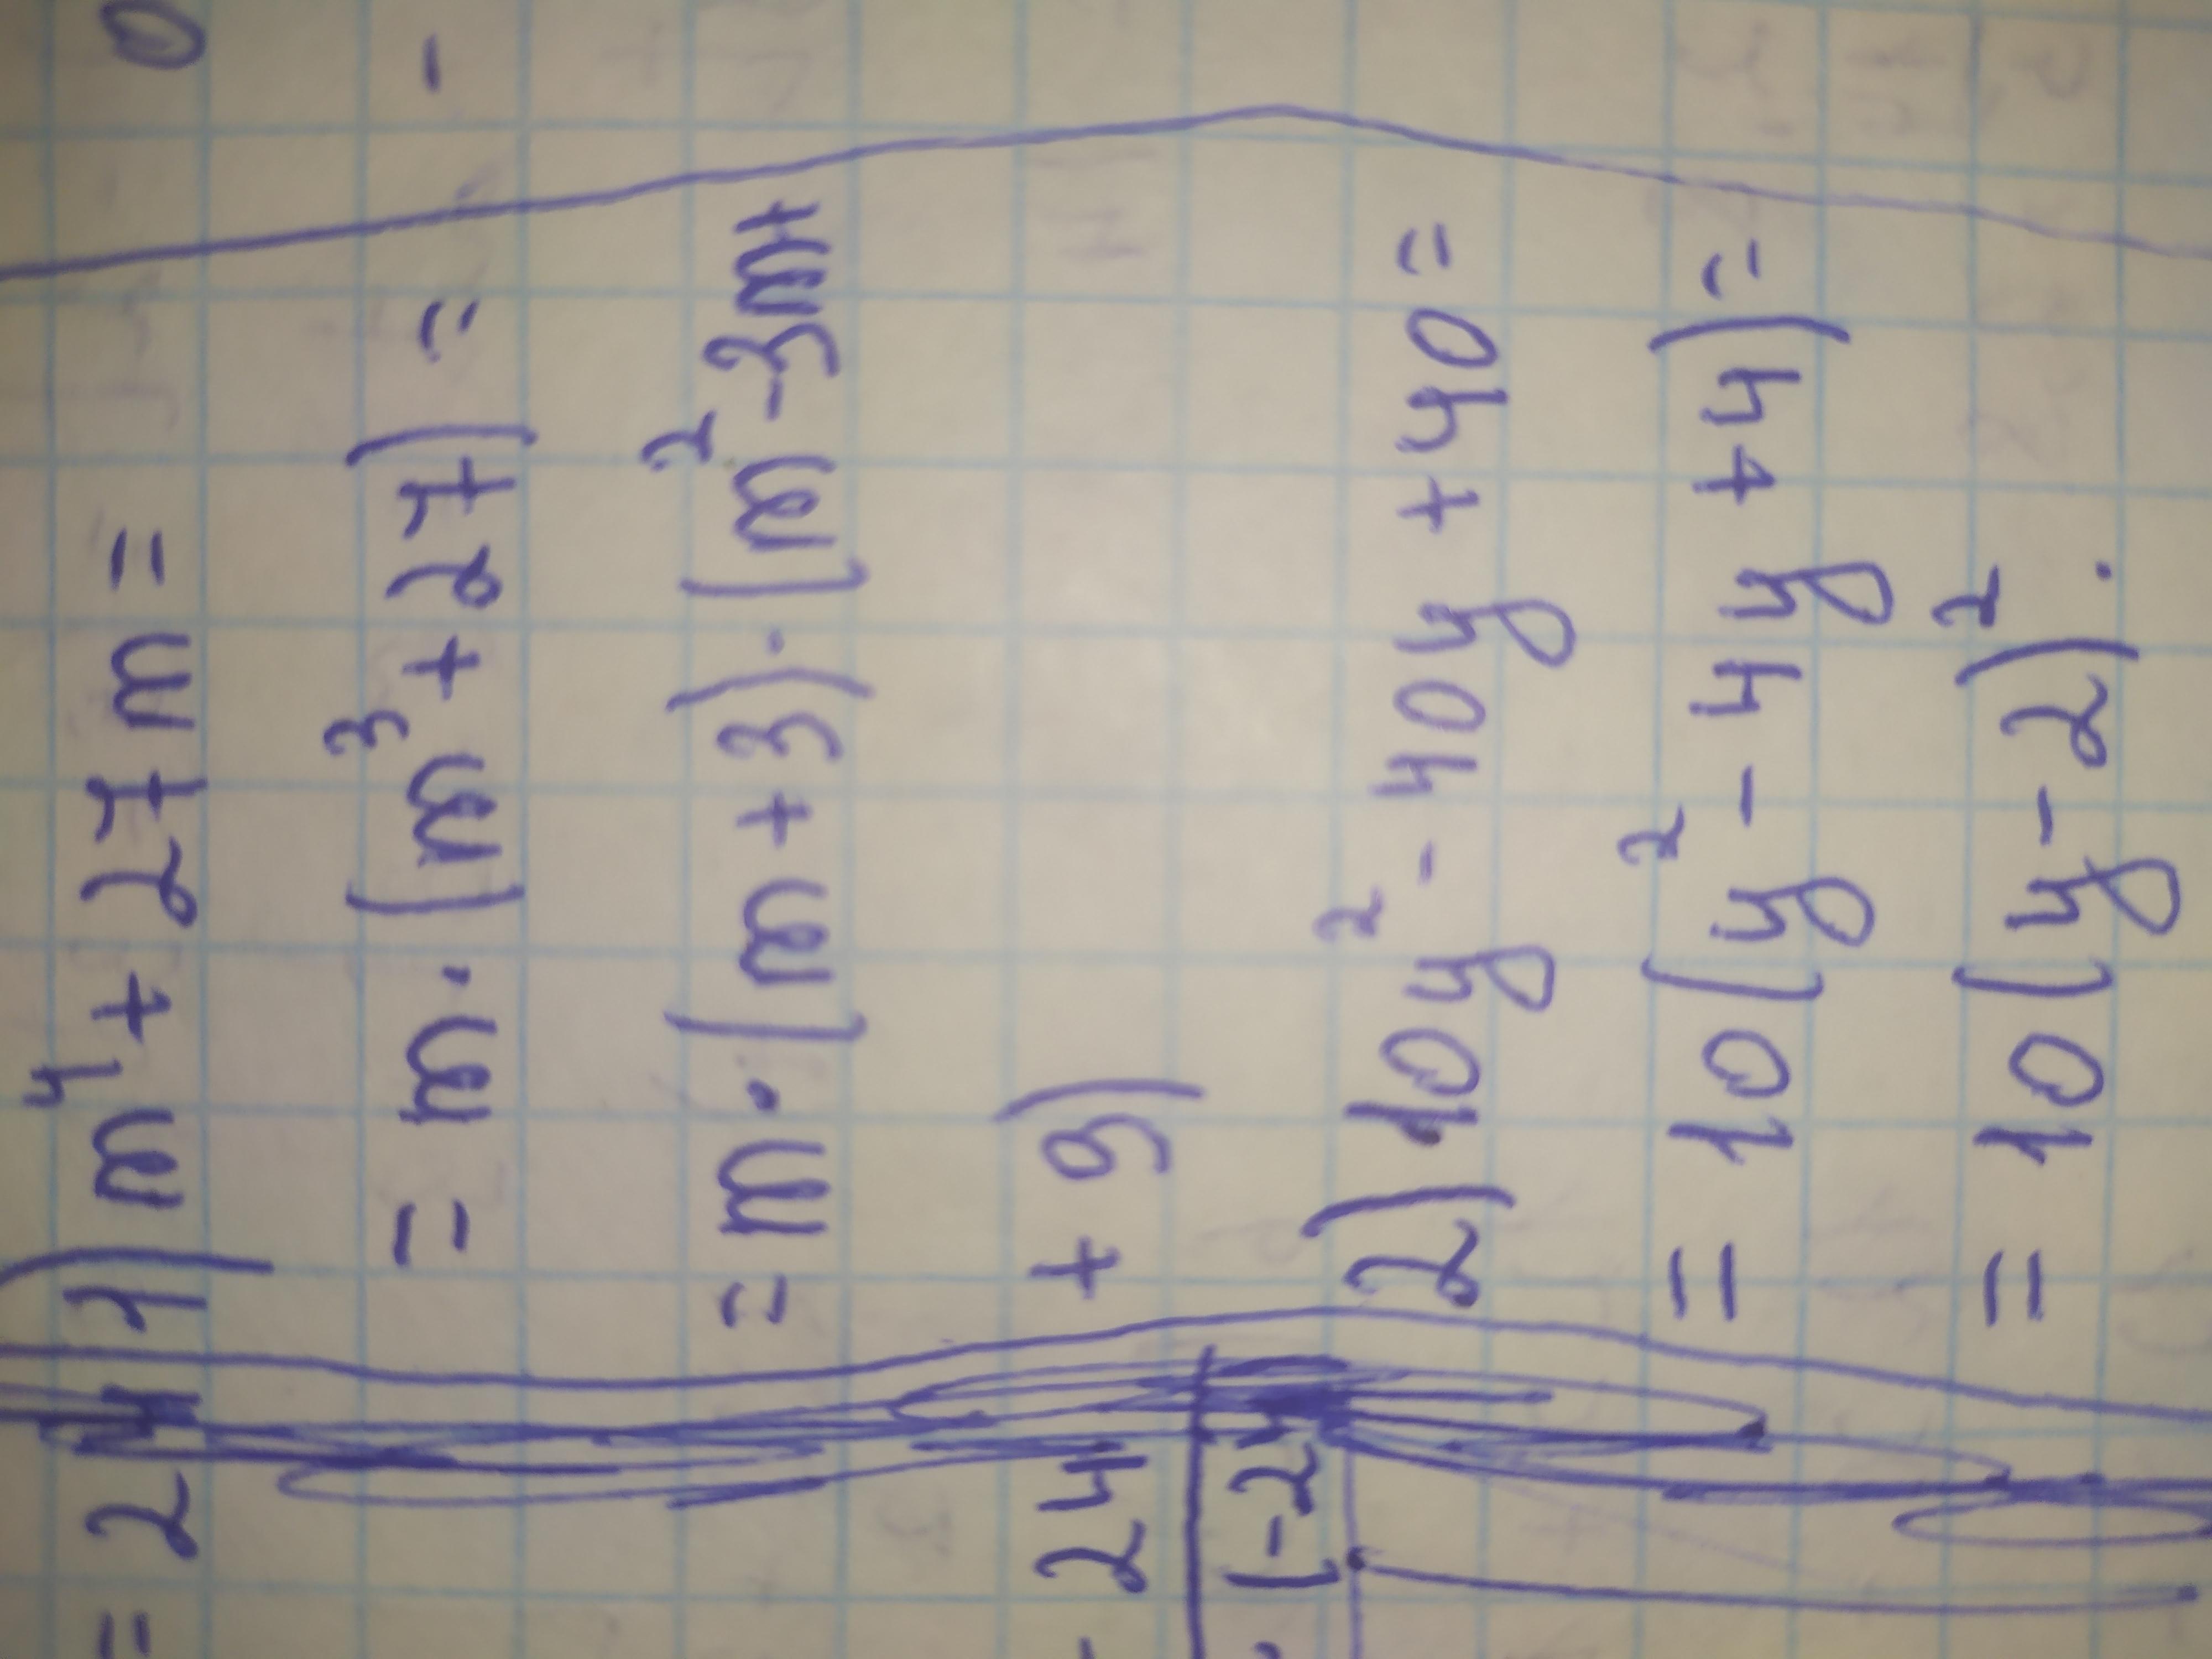 1) m⁴ + 27m =
= m · (m³ + 27) =
= m · (m + 3) · (m² - 3m +
+ 9)
2) 10y² - 40y + 40 =
= 10(y² - 4y + 4) =
= 10(y - 2)².
= 2
24
(-2
0
-